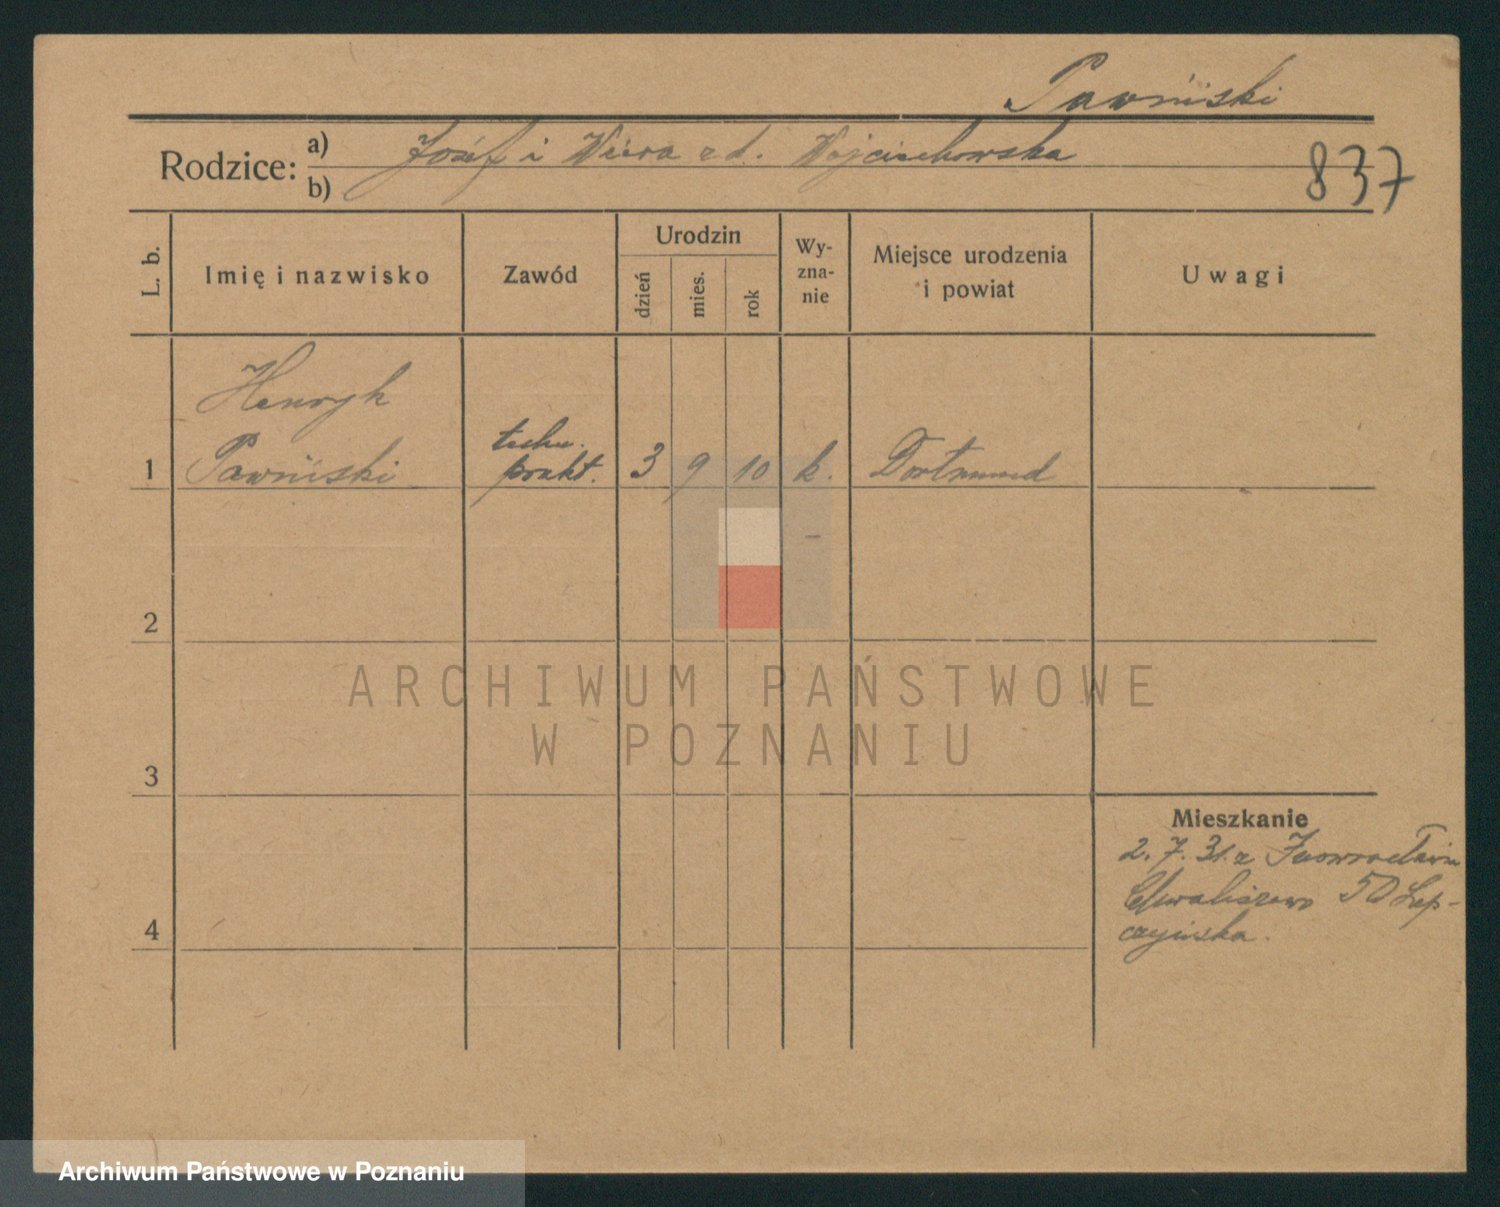 Pawiński
Rodzice: a) Józef i Wiera zd. Wojciechowska
b)
837
L. b. Imię i nazwisko Zawód Urodzin dzień mies. rok Wyznanie Miejsce urodzenia i powiat Uwagi
Henryk
1 Pawiński techn. prakt. 3 9 10 k. Dortmund
2
ARCHIWUM PAŃSTWOWE
W POZNANIU
3
Mieszkanie
2. 7. 31. z Inowrocławia
Chwaliszewo 50 Łep-
4 czyńska.
Archiwum Państwowe w Poznaniu